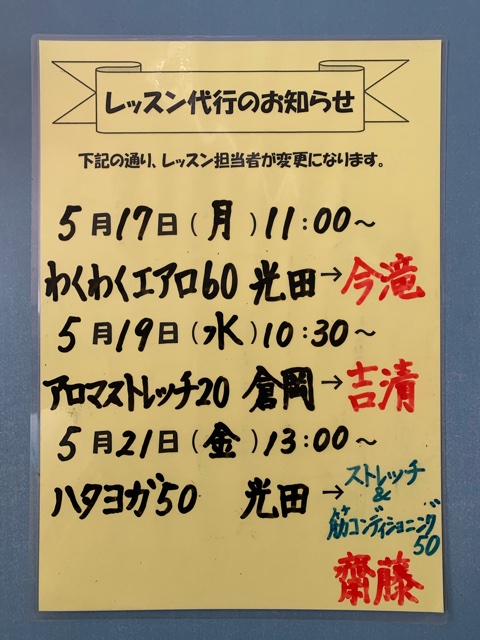 レッスン代行のお知らせ
下記の通り、レッスン担当者が変更になります。
5月17日(月)11:00〜
わくわくエアロ60 光田→今滝
5月19日(水)10:30〜
アロマストレッチ20 倉岡→吉清
5月21日(金)13:00〜
ハタヨガ50 光田→ストレッチ
&
筋コンディショニング
50
齋藤